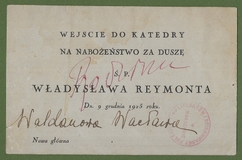 WEJŚCIE DO KATEDRY
NA NABOŻEŃSTWO ZA DUSZĘ
Ś. P.
WŁADYSŁAWA REYMONTA
Dn. 9 grudnia 1925 roku.
Wacława
Nawa główna